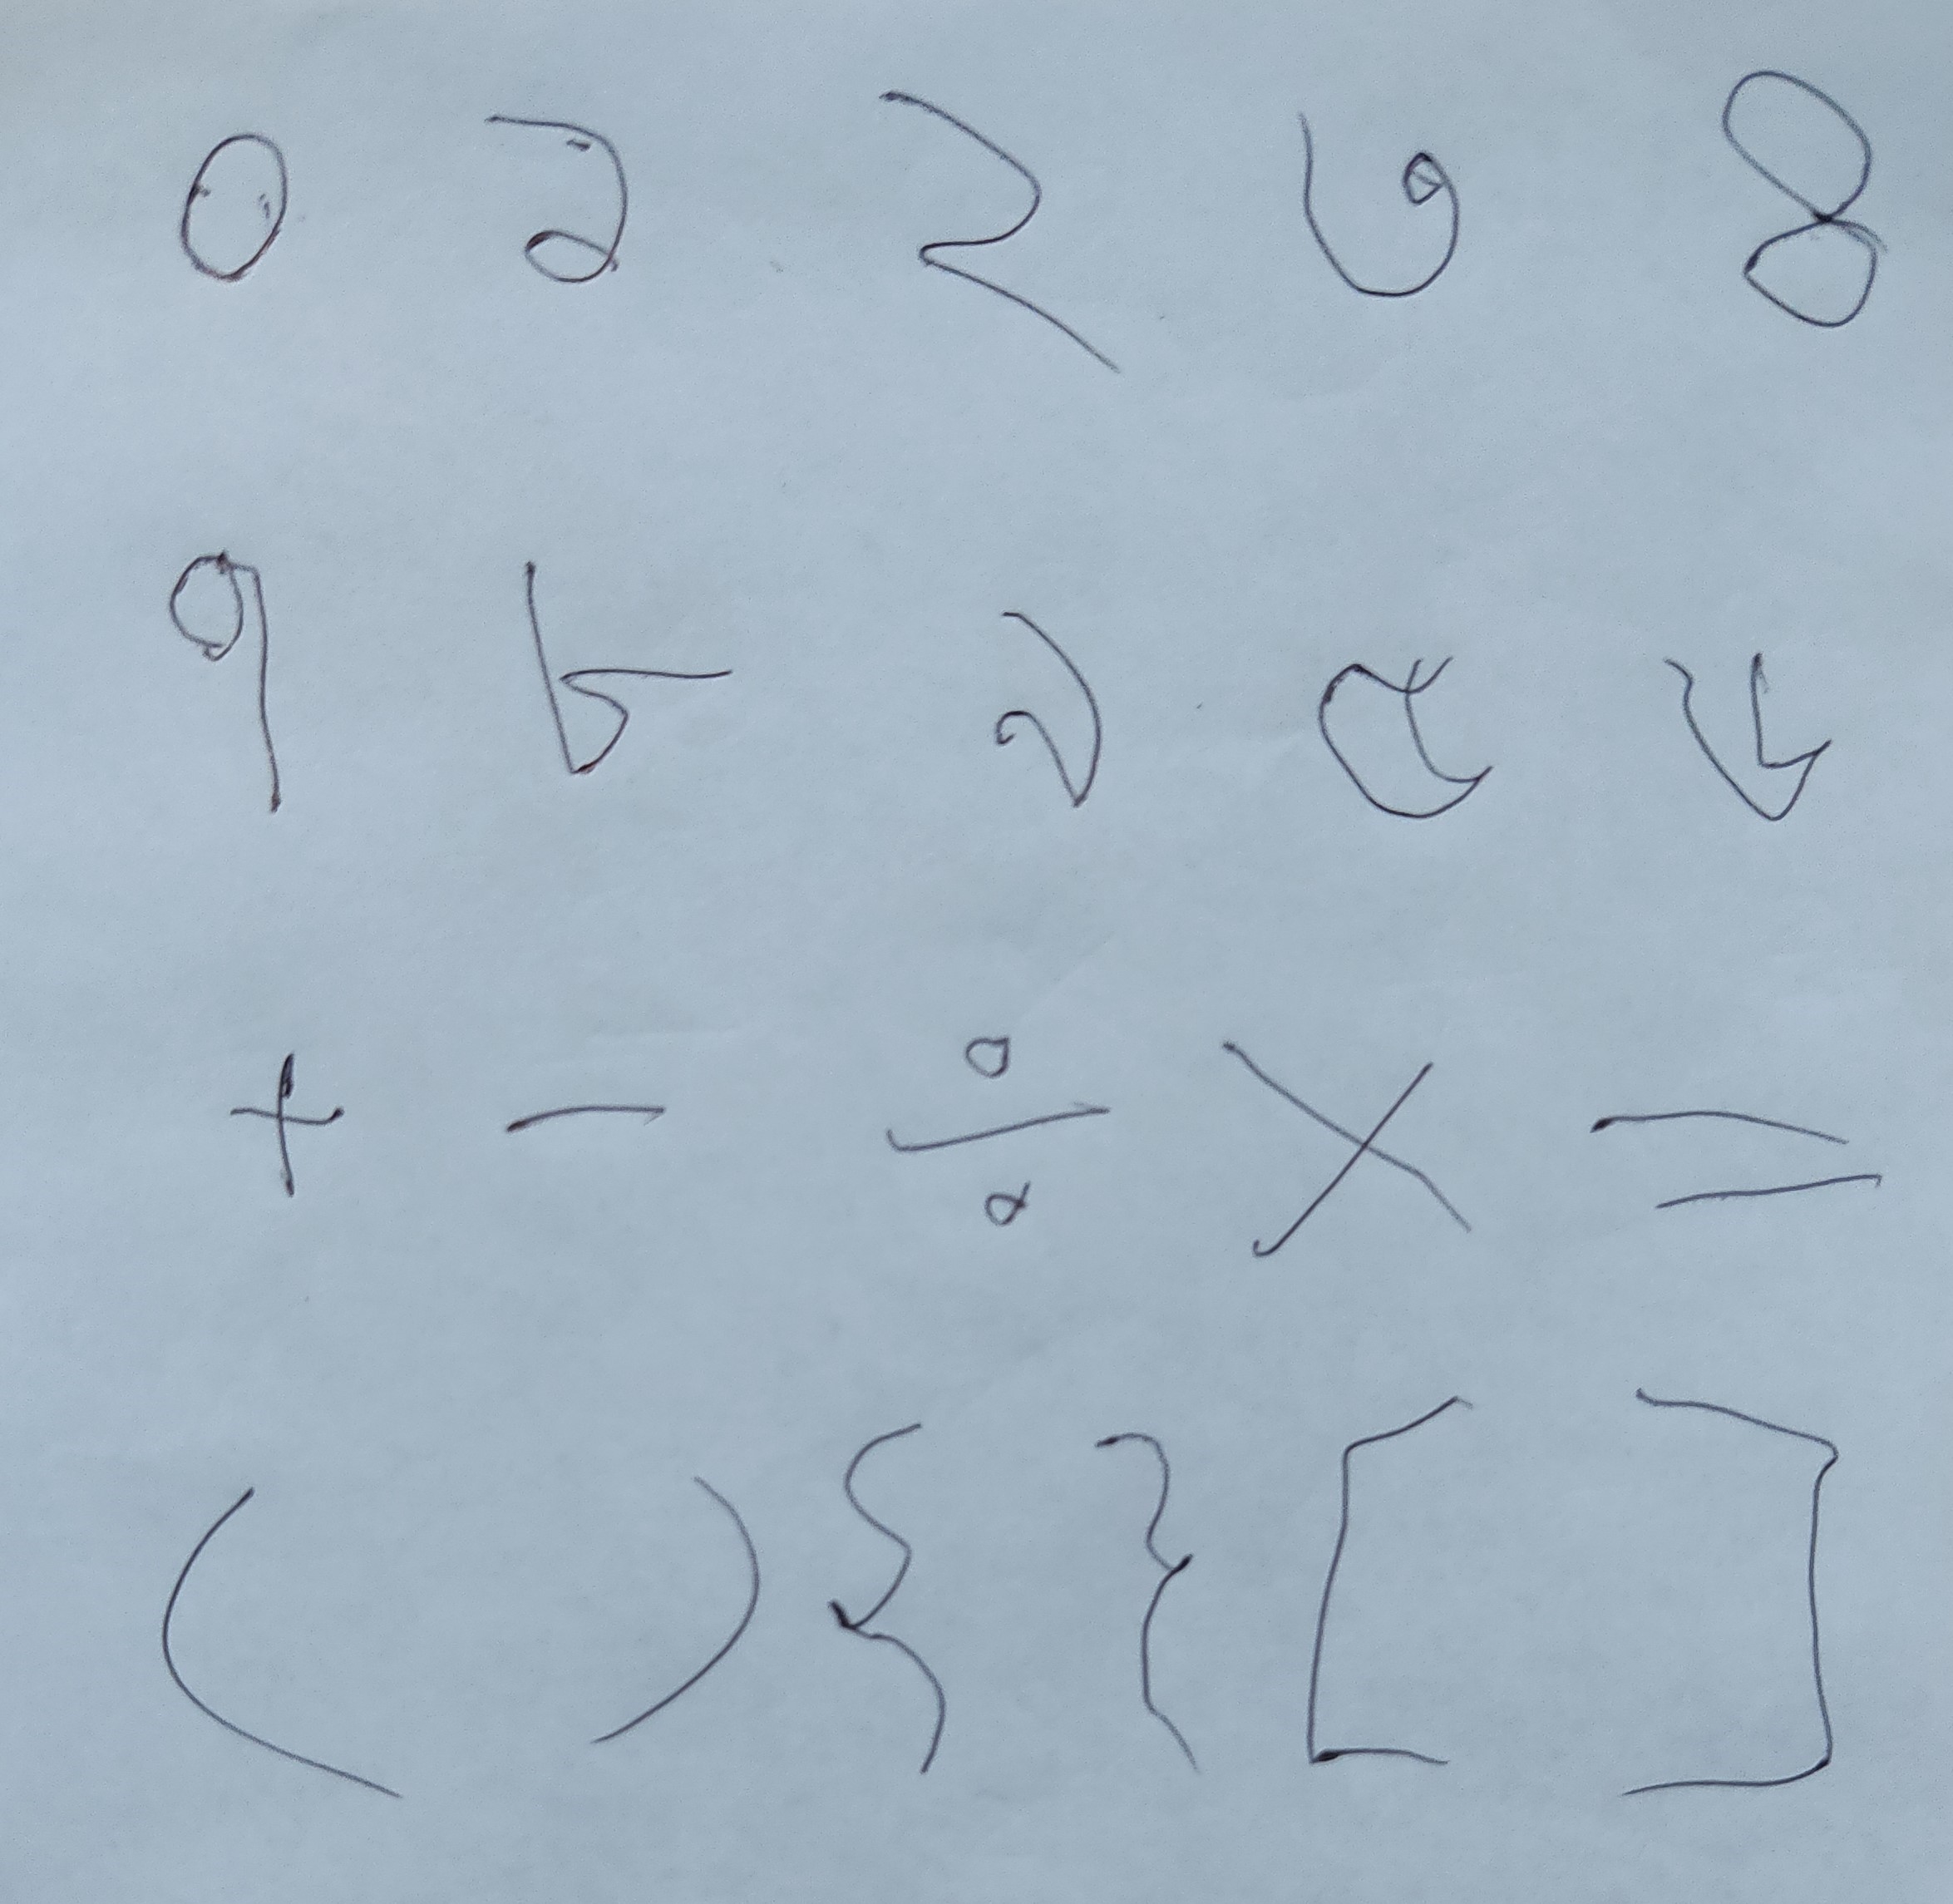 ০ ১ ২ ৩ ৪
৭ ৮ ৯ ৫ ৬
+ − ÷ × =
( ) { } [ ]